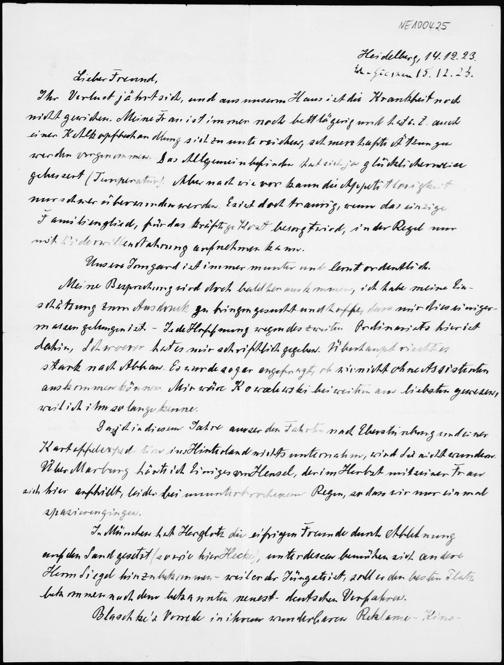 NE100425
Heidelberg, 14.12.23.
15.12.23.
Lieber Freund,
Ihr Verlust jährt sich, und aus unserm Haus ist die Krankheit noch
nicht gewichen. Meine Frau ist immer noch bettlägerig und hat z. Z. auch
einer Kehlkopfbehandlung sich zu unterziehen, schmerzhafte Ätzungen
werden vorgenommen. Das Allgemeinbefinden hat sich ja glücklicherweise
gebessert (Temperatur). Aber nach wie vor kann die Appetitlosigkeit
nur schwer überwunden werden. Es ist doch traurig, wenn das einzige
Familienglied, für das kräftige Kost besorgt wird, in der Regel nur
mit Widerwillen Nahrung aufnehmen kann.
Unsere Irmgard ist immer munter und lernt ordentlich.
Meine Besprechung wird doch bald herauskommen, ich habe meine Ein-
schätzung zum Ausdruck zu bringen gesucht und hoffe, dass mir dies einiger-
massen gelungen ist. – Jede Hoffnung wegen des zweiten Ordinariats hier ist
dahin, hat es mir schriftlich gegeben. Überhaupt riecht es
stark nach Abbau. Es wurde sogar angefragt, ob wir nicht ohne Assistenten
auskommen können. Mir wäre Kowalewski bei weitem am liebsten gewesen,
weil ich ihn so lange kenne.
Dass ich in diesem Jahre ausser den Fahrten nach und einer
Kartoffelexpedition ins Hinterland nichts unternahm, wird Sie nicht wundern.
Über Marburg hörte ich Einiges von Hensel, der im Herbst mit seiner Frau
sich hier aufhielt, leider bei ununterbrochenem Regen, so dass wir nur einmal
spazierengingen.
In München hat Herglotz die eifrigen Freunde durch Ablehnung
auf den Sand gesetzt (so wie hier Hecke), unterdessen bemühen sich andere
Herrn Siegel hinzubekommen – weil er der Jüngste ist, soll er den besten Platz
bekommen nach dem bekannten neuest-deutschen Verfahren.
Blaschke's Vorrede in ihrem wunderbaren Reklame-Kino-